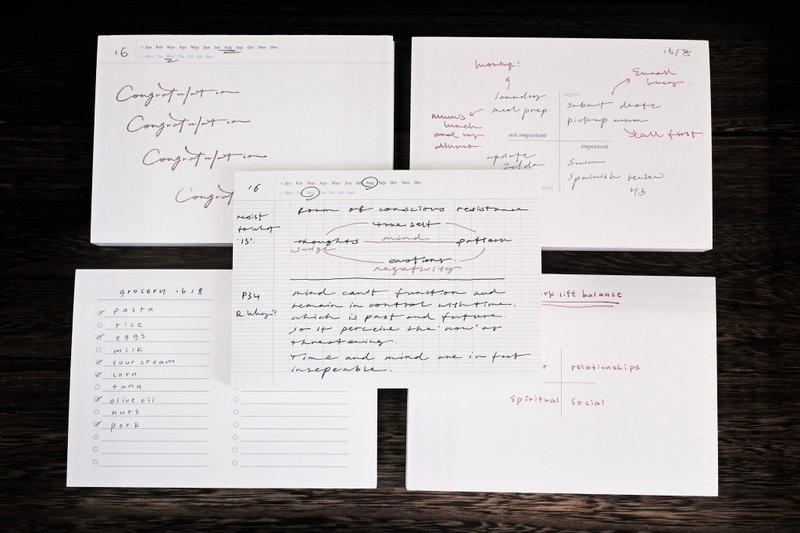 '16
> Jan Feb Mar Apr May Jun Jul Aug Sep Oct Nov Dec
> Mon Tue Wed Thu Fri Sat Sun
Congratulation
Congratulation
Congratulation
Congra
morning!
laundry
meal prep.
mum's
lunch
and my
dinner.
not important
update
urgent
submit
pickup mum.
call first.
important
Swim
Spanish review
grocery .6/8
pasta
rice
eggs
milk
sour cream
corn
tuna
olive oil
nuts
pork
'16
> Jan Feb Mar Apr May Jun Jul Aug Sep Oct Nov Dec
Thu Fri Sat Sun
resist
to what
'is'.
form of conscious resistance.
true self
thoughts mind pattern
judge.
emotions
negativity
P34
Q Why?
mind can't function and
remain in control with time.
which is past and future.
so it perceive the 'now' as
threatening.
Time and mind are in fact
inseperable.
life balance
relationships
Spiritual
social